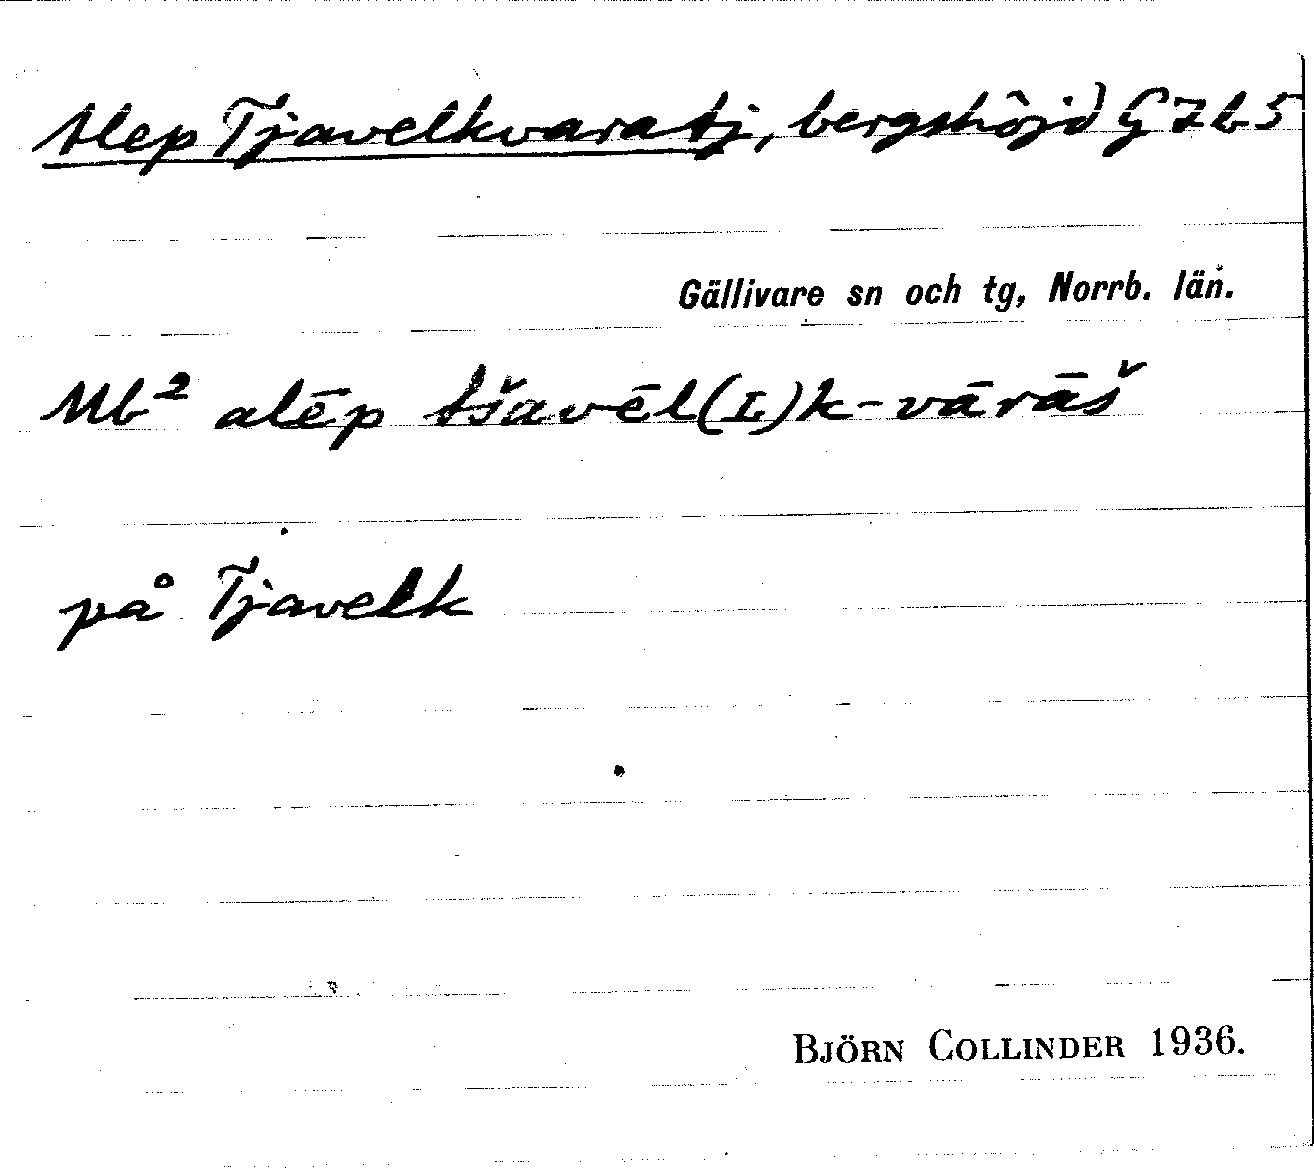 Alep Tjavelkvaratj, bergshöjd G 7 b 5
Gällivare sn och tg, Norrb. län.
Mb² alēp tšavēl(ʟ)k-vārāš
på Tjavelk
BJÖRN COLLINDER 1936.